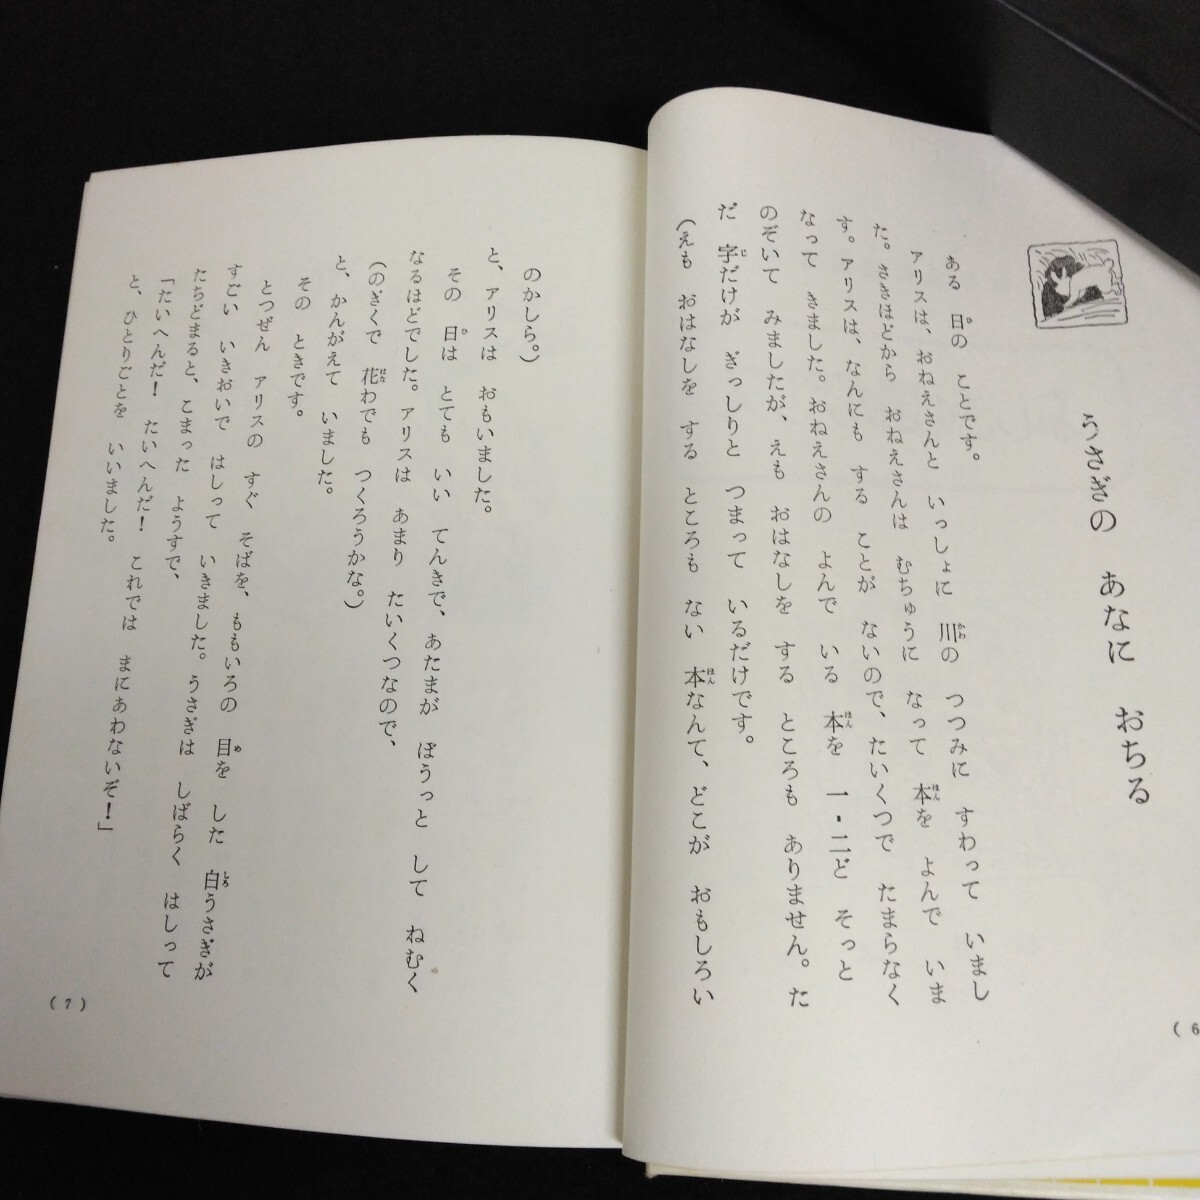 うさぎの あなに おちる
ある 日の ことです。
アリスは、おねえさんと いっしょに 川の つつみに すわって いまし
た。さきほどから おねえさんは むちゅうに なって 本を よんで いま
す。アリスは、なんにも する ことが ないので、たいくつで たまらなく
なって きました。おねえさんの よんで いる 本を 一・二ど そっと
のぞいて みましたが、えも おはなしを する ところも ありません。た
だ 字だけが ぎっしりと つまって いるだけです。
(えも おはなしを する ところも ない 本なんて、どこが おもしろい
(6
のかしら。)
と、アリスは おもいました。
その 日は とても いい てんきで、あたまが ぼうっと して ねむく
なるほどでした。アリスは あまり たいくつなので、
(のぎくで 花わでも つくろうかな。)
と、かんがえて いました。
その ときです。
とつぜん アリスの すぐ そばを、ももいろの 目を した 白うさぎが
すごい いきおいで はしって いきました。うさぎは しばらく はしって
たちどまると、こまった ようすで、
「たいへんだ! たいへんだ! これでは まにあわないぞ!」
と、ひとりごとを いいました。
(7)